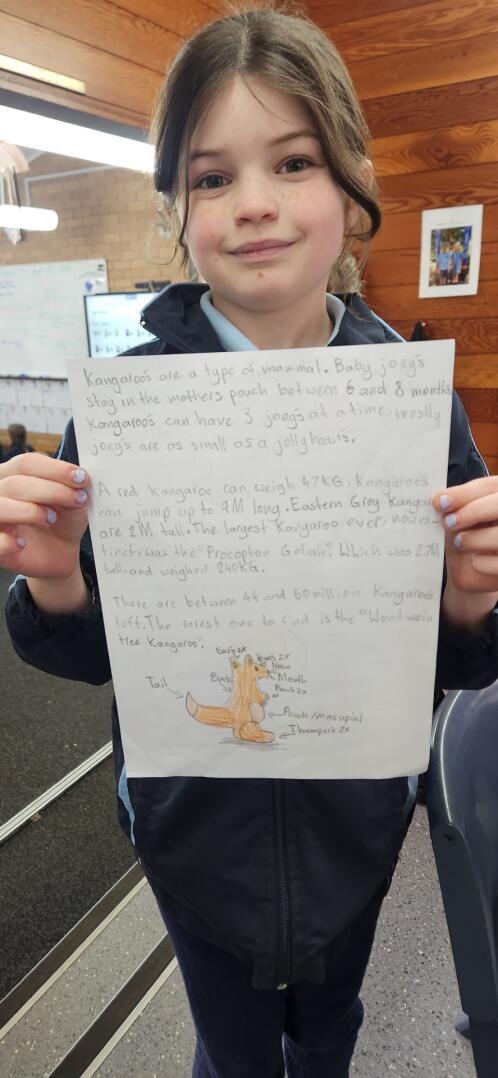 Kangaroo's are a type of mammal. Baby joey's
stay in the mothers pouch between 6 and 8 months
Kangaroo's can have 3 joey's at a time, mostly
joeys are as small as a jellybean's.
A red kangaroo can weigh 47KG. Kangaroo's
can jump up to 9M long. Eastern Grey Kangar
are 2M tall. The largest Kangaroo ever, now e
tinct, was the "Procopton Goliah". Which was 2.7M
tall and weighed 240KG.
There are between 44 and 60 million Kangaroo's
left. The rarest one to find is the "Wondiwoin
tree Kangaroo".
Ears 2x
2x
Nose
Mouth
2x
Tail
Pouch/marsupial
Thumpers 2x